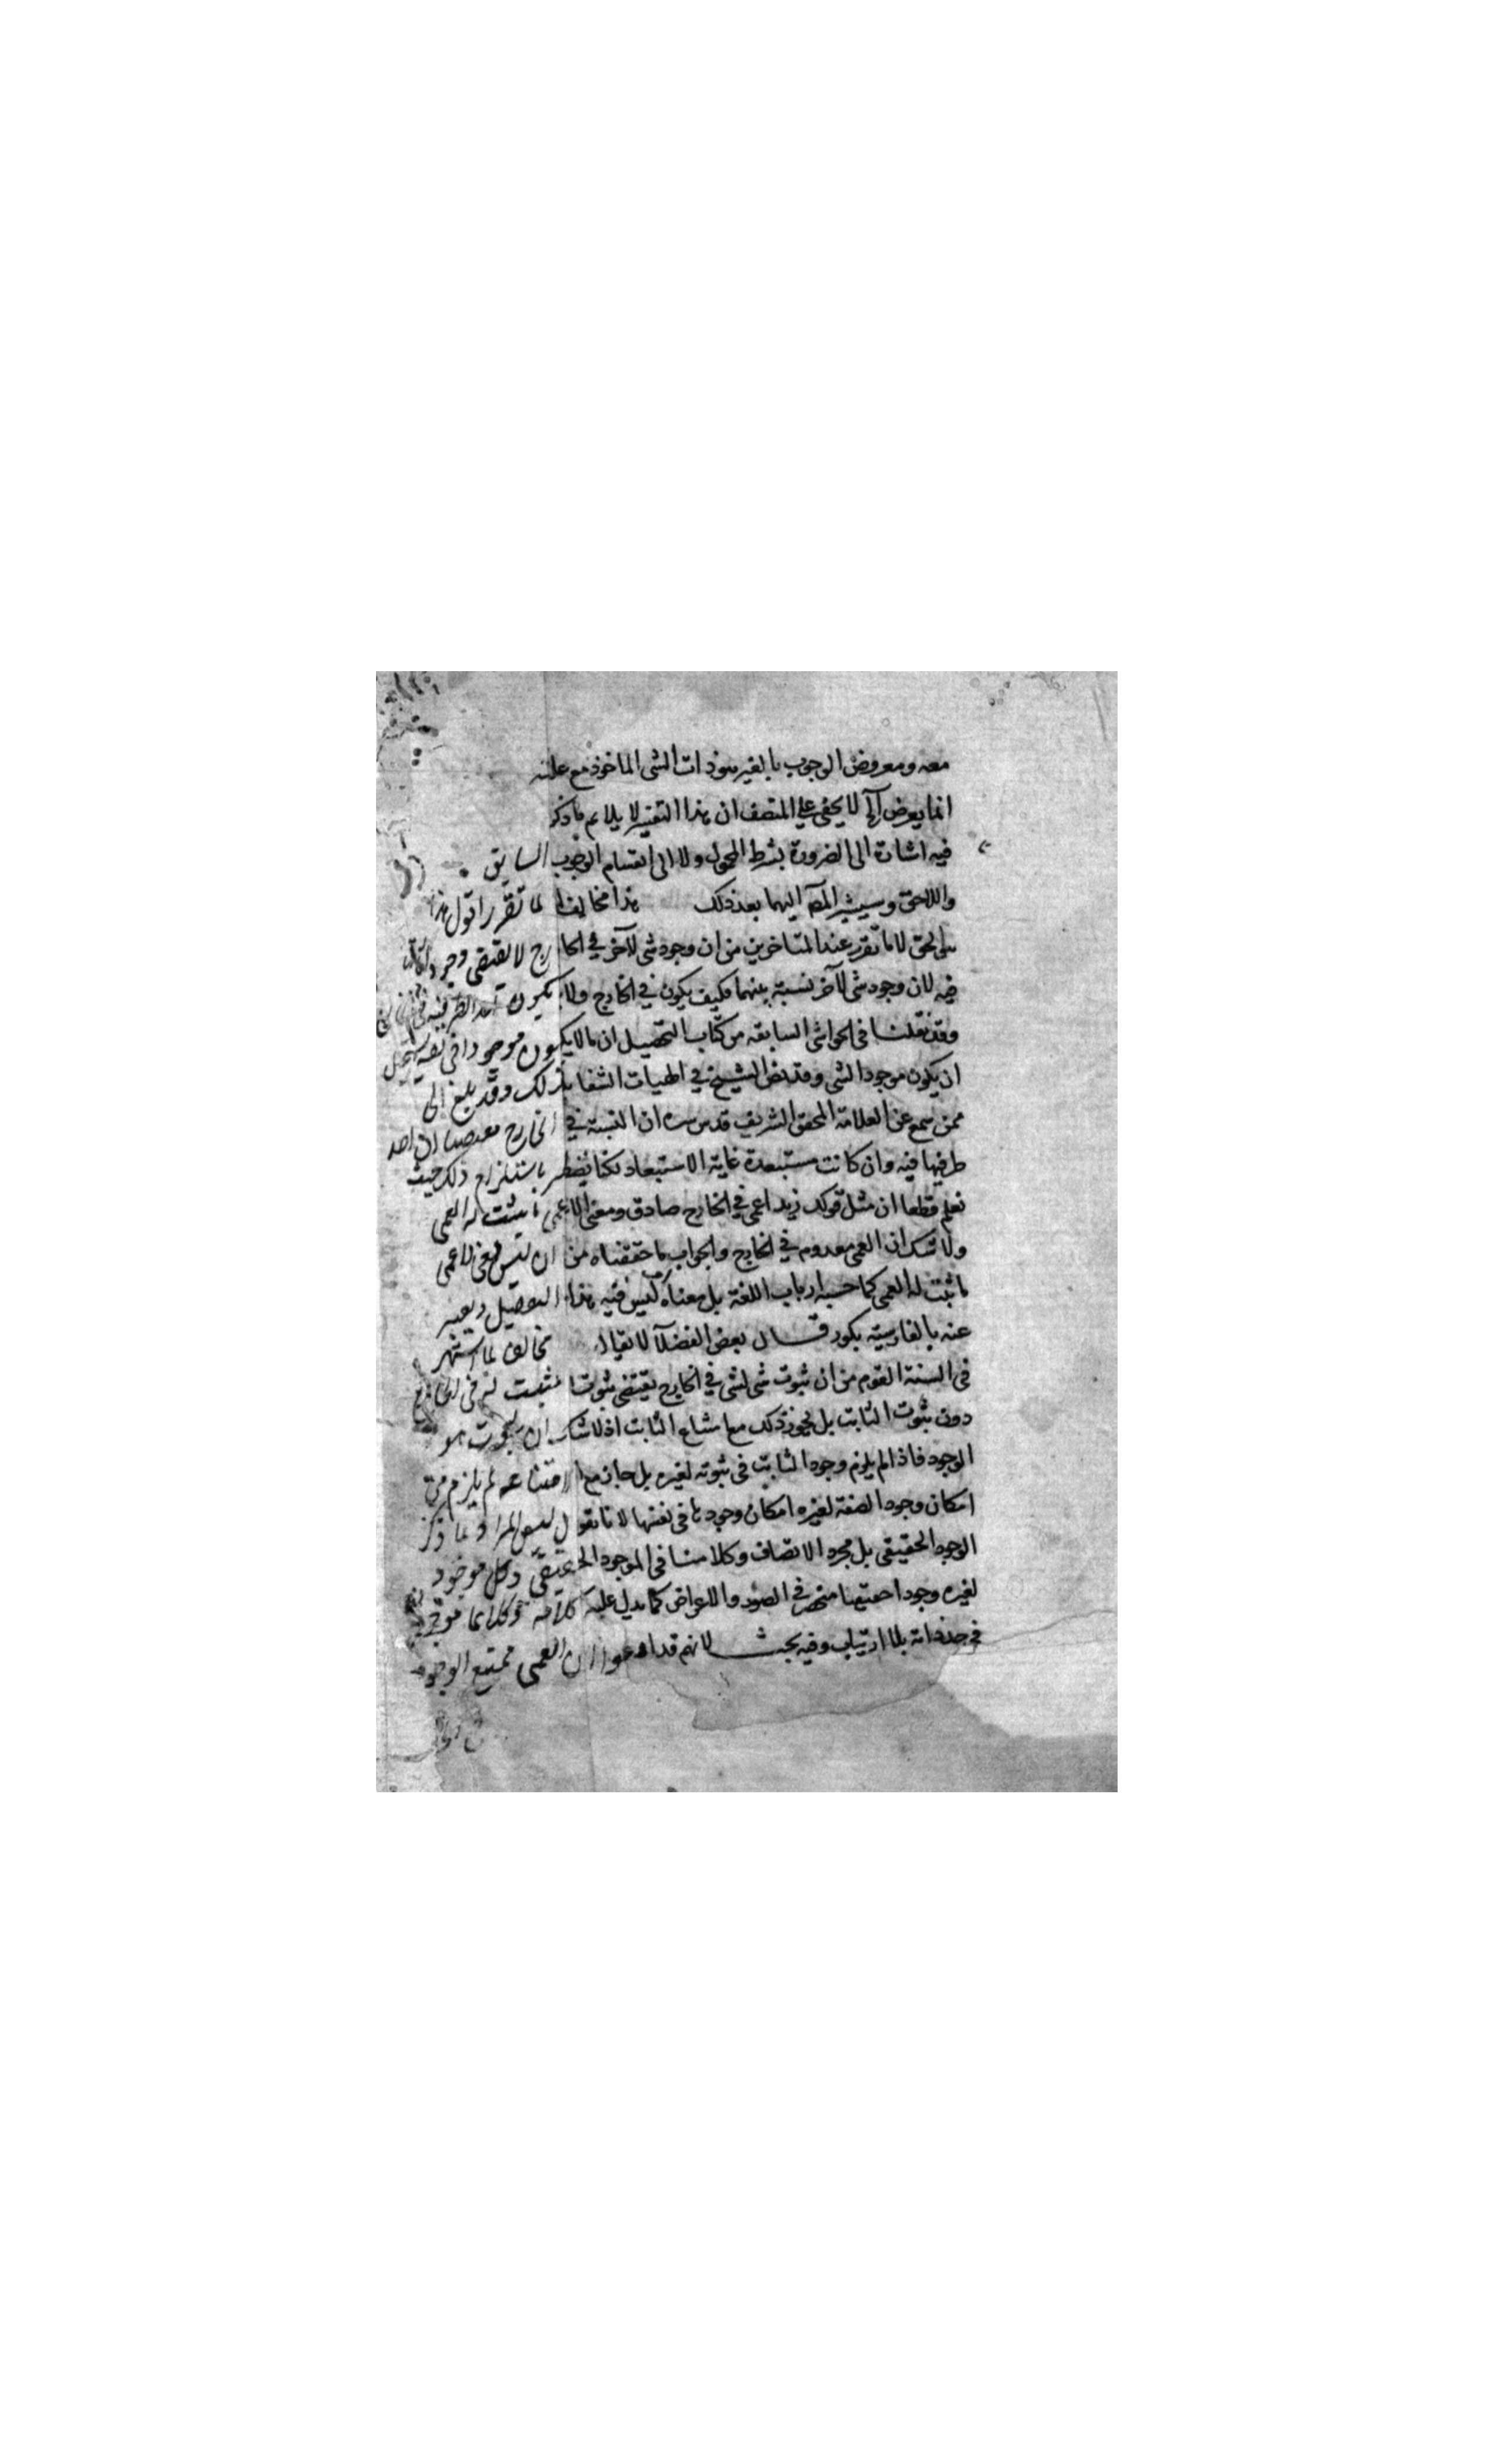 معه ومعروض الوجوب بالغير هو ذات الشى الماخوذ مع علته
انما يعرض آلخ لا يخفى على المنصف ان هذا التفسير لا يلايم ما ذكر
فيه اشارة الى الضرورة بشرط المحمول ولا الى انقسام الوجوب السابق
واللاحق وسيشير المص اليهما بعد ذلك هذا مخالف لما تقرر اقول هذا
هو الحق لا ما تقرر عند المتاخرين من ان وجود شى لآخر في الخارج لا يقتضى وجود
فيه لان وجود شى لآخر نسبة بينهما فكيف يكون في الخارج ولا يكون احد الطرفين
وقد نقلنا فى الحواشى السابقه من كتاب التحصيل ان ما لا يكون موجودا فى نفسه يستحيل
ان يكون موجودا لشى وقد نص الشيخ في الهيات الشفا بذلك وقد بلغ الى
ممن سمع عن العلامة المحقق الشريف قدس سره ان النسبة في الخارج احد
طرفيها فيه وان كانت مستبعدة غاية الاستبعاد لكنا نضطر باستلزام ذلك حيث
نعلم قطعا ان مثل قولك زيد اعمى في الخارج صادق ومعنى الاعمى ما يثبت له العمى
ولا شك ان العمى معدوم في الخارج والجواب ما حققناه من ان ليس معنى الاعمى
ما ثبت له العمى كما حسبه ارباب اللغة بل معناه ليس فيه هذا التفصيل ويعبر
عنه بالفارسية بكور قال بعض الفضلآ لا يقال مخالف لما اشتهر
فى السنة القوم من ان ثبوت شى لشى في الخارج يقتضى ثبوت المثبت له فى الخارج
دون ثبوت الثابت بل يجوز ذلك مع امتناع الثابت اذ لا شك ان الثبوت هو
الوجود فاذا لم يلزم وجود الثابت فى ثبوته لغيره بل جاز مع امتناعه لم يلزم من
امكان وجود الصفة لغيره امكان وجودها فى نفسها لانا نقول ليس المراد بما ذكر
الوجود الحقيقى بل مجرد الاتصاف وكلامنا فى الموجود الحقيقى وكل موجود
لغيره وجودا حقيقيا منحصر فى الصور والاعراض كما يدل عليه كلامه وكلاهما موجود
فى حد ذاته بلا ارتياب وفيه بحث لانهم قد ادعوا ان العمى ممتنع الوجود